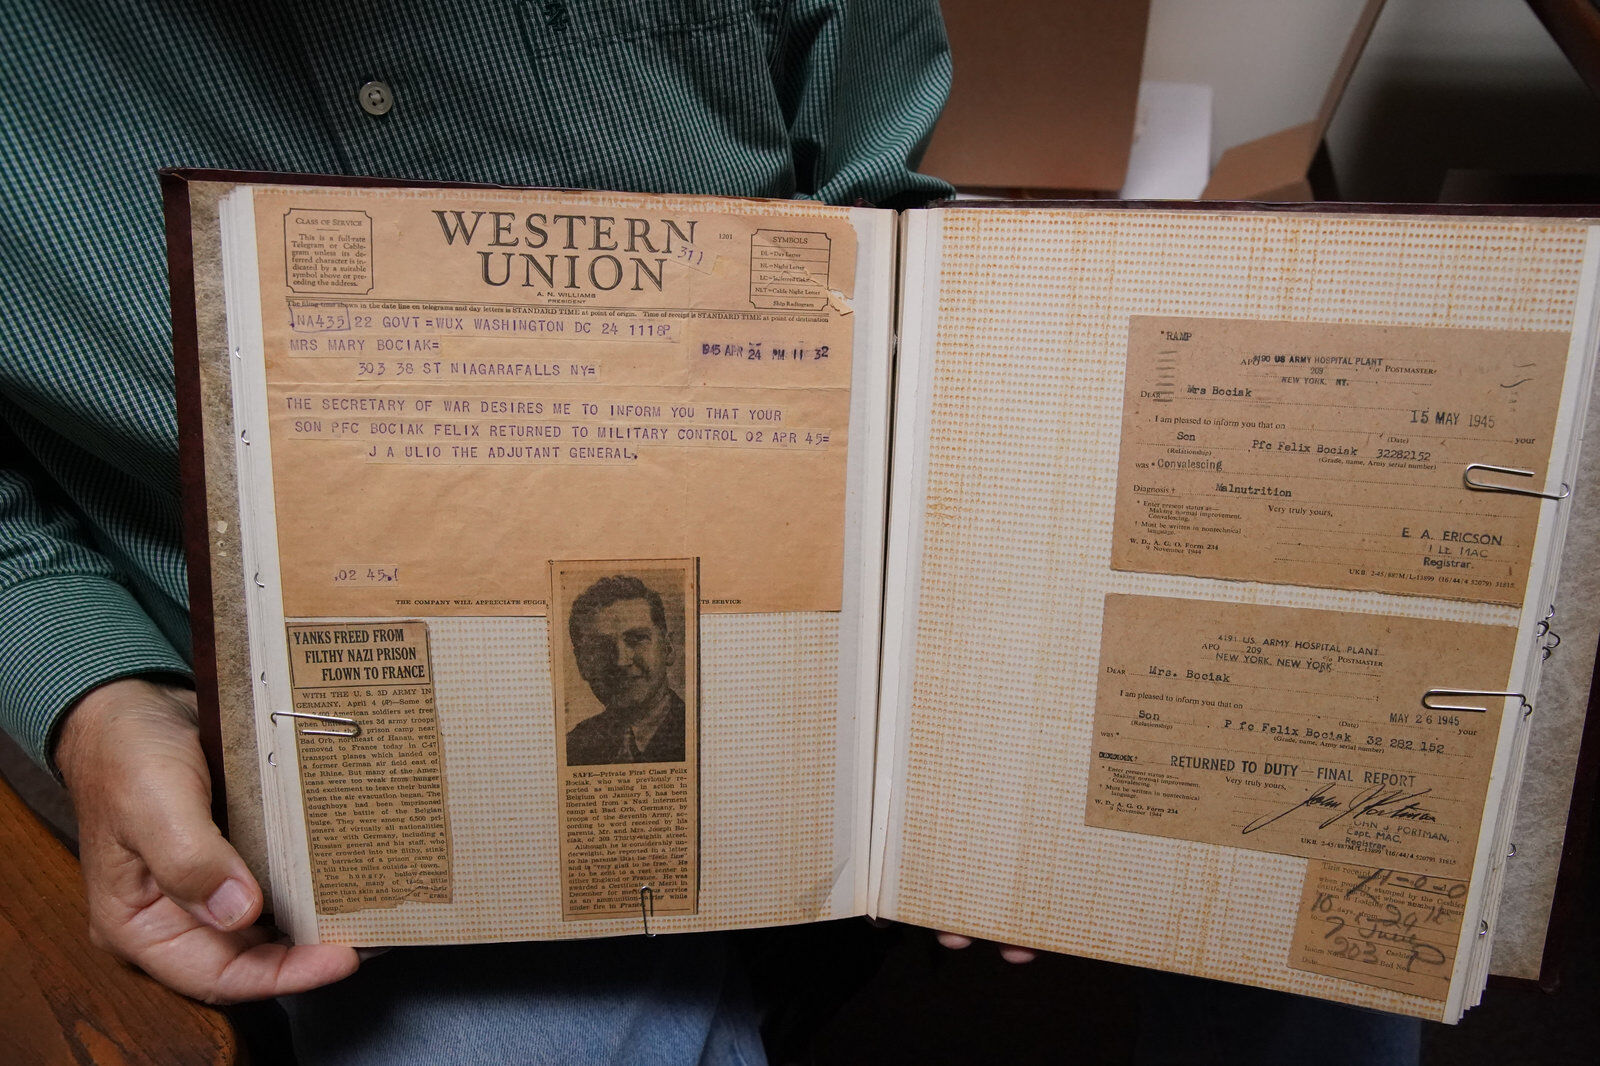 CLASS OF SERVICE
This is a full-rate
Telegram or Cable-
gram unless its de-
ferred character is in-
dicated by a suitable
symbol above or pre-
ceding the address.
WESTERN
UNION
1201
311
A. N. WILLIAMS
PRESIDENT
SYMBOLS
DL=Day Letter
NL=Night Letter
LC=Deferred Cable
NLT=Cable Night Letter
Ship Radiogram
The filing time shown in the date line on telegrams and day letters is STANDARD TIME at point of origin. Time of receipt is STANDARD TIME at point of destination
NA435 22 GOVT=WUX WASHINGTON DC 24 1118P
MRS MARY BOCIAK=
1945 APR 24 PM 11 32
303 38 ST NIAGARAFALLS NY=
THE SECRETARY OF WAR DESIRES ME TO INFORM YOU THAT YOUR
SON PFC BOCIAK FELIX RETURNED TO MILITARY CONTROL 02 APR 45=
J A ULIO THE ADJUTANT GENERAL.
.02 45.(
THE COMPANY WILL APPRECIATE SUGG
TS SERVICE
YANKS FREED FROM
FILTHY NAZI PRISON
FLOWN TO FRANCE
WITH THE U. S. 3D ARMY IN
GERMANY, April 4 (P)—Some of
400 American soldiers set free
when United States 3d army troops
prison camp near
Bad Orb, northeast of Hanau, were
removed to France today in C-47
transport planes which landed on
a former German air field east of
the Rhine. But many of the Amer-
icans were too weak from hunger
and excitement to leave their bunks
when the air evacuation began. The
doughboys had been imprisoned
since the battle of the Belgian
bulge. They were among 6,500 pri-
soners of virtually all nationalities
at war with Germany, including a
Russian general and his staff, who
were crowded into the filthy, stink-
ing barracks of a prison camp on
a hill three miles outside of town.
The hungry, hollow-cheeked
Americans, many of them little
more than skin and bones, said their
prison diet had consisted of "grass
soup."
SAFE—Private First Class Felix
Bociak, who was previously re-
ported as missing in action in
Belgium on January 5, has been
liberated from a Nazi internment
camp at Bad Orb, Germany, by
troops of the Seventh Army, ac-
cording to word received by his
parents, Mr. and Mrs. Joseph Bo-
ciak, of 303 Thirty-eighth street.
Although he is considerably un-
derweight, he reported in a letter
to his parents that he "feels fine"
and is "very glad to be free." He
is to be sent to a rest center in
either England or France. He was
awarded a Certificate of Merit in
December for service
as an ammunition carrier while
under fire in France.
"RAMP
4190 US ARMY HOSPITAL PLANT
APO 209 c/o POSTMASTER
NEW YORK, NY.
DEAR Mrs Bociak
15 MAY 1945
I am pleased to inform you that on
(Date) your
Son Pfc Felix Bociak 32282152
(Relationship) (Grade, name, Army serial number)
was * Convalescing
Diagnosis † Malnutrition
* Enter present status as—
Making normal improvement.
Convalescing.
† Must be written in nontechnical
language.
Very truly yours,
E. A. ERICSON
1 Lt. MAC
Registrar.
W. D., A. G. O. Form 234
9 November 1944
UKB. 2-45/887M/L-13899 (16/44/4 52079) 31815
4191 US. ARMY HOSPITAL PLANT
APO 209 c/o POSTMASTER
NEW YORK, NEW YORK
DEAR Mrs. Bociak
I am pleased to inform you that on MAY 26 1945
(Date) your
Son P fc Felix Bociak 32 282 152
(Relationship) (Grade, name, Army serial number)
was *
RETURNED TO DUTY—FINAL REPORT
* Enter present status as—
Making normal improvement.
Convalescing.
† Must be written in nontechnical
language.
Very truly yours,
JOHN J. PORTMAN,
Capt. MAC.
Registrar
W. D., A. G. O. Form 234
9 November 1944
UKB. 2-45/887M/L-13899 (16/44/4 52079) 31815
This receipt
when properly stamped by the Cashier
10 days, from 24
June
Cashier
Room No. 203 Bed No.
Date